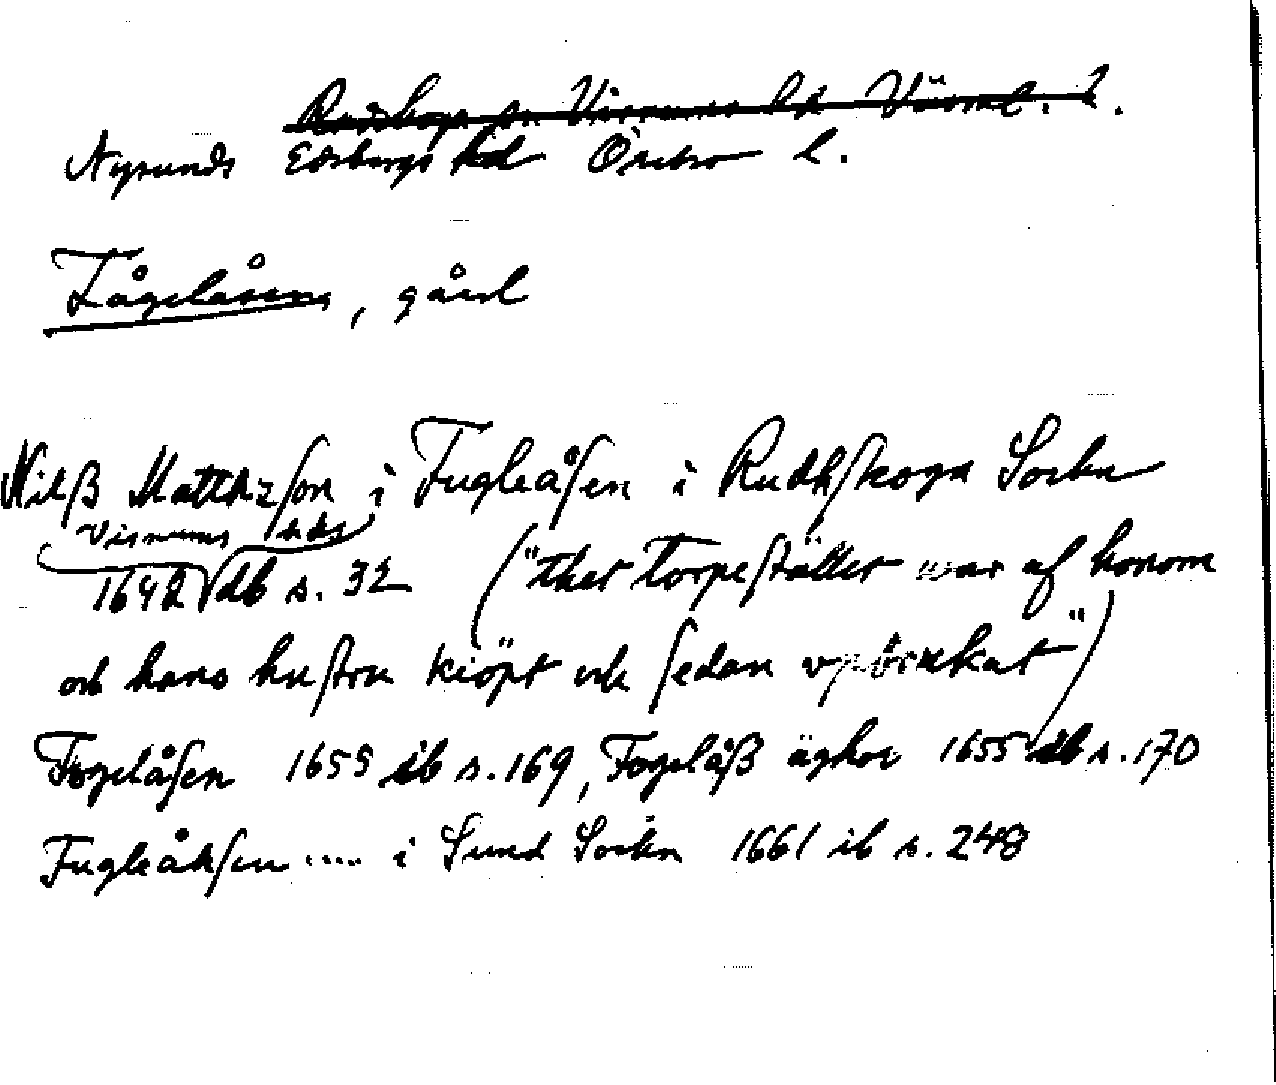 Rudskoga sn Visnums hd Värml. l.
Nysunds Edsbergs hd Örebro l.
Fågelåsen, gård
Nilß Matthzson i Fugleåsen i Rudhskoga Sockn
Visnums hds
1642 db s. 32 ("thet torpestället war af honom
och hans hustru kiöpt och sedan vpbrukat")
Fogelåsen 1655 ib s. 169, Fogelåß äghor 1655 db s. 170
Fugleåhsen .... i Sund Sockn 1661 ib s. 248